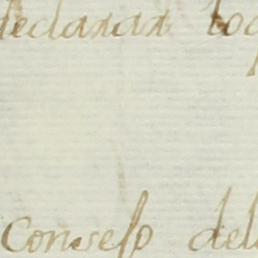 declaran to
Consejo del